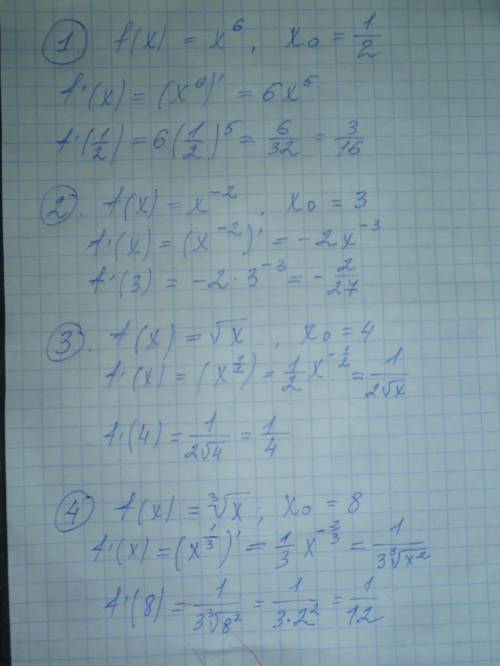 ① f(x) = x⁶, x₀ = 1/2
f'(x) = (x⁶)' = 6x⁵
f'(1/2) = 6(1/2)⁵ = 6/32 = 3/16
②. f(x) = x⁻², x₀ = 3
f'(x) = (x⁻²)' = -2x⁻³
f'(3) = -2·3⁻³ = -2/27
③. f(x) = √x, x₀ = 4
f'(x) = (x^(1/2)) = 1/2 x^(-1/2) = 1/(2√x)
f'(4) = 1/(2√4) = 1/4
④ f(x) = ∛x; x₀ = 8
f'(x) = (x^(1/3))' = 1/3 x^(-2/3) = 1/(3∛x²)
f'(8) = 1/(3∛8²) = 1/(3·2²) = 1/12